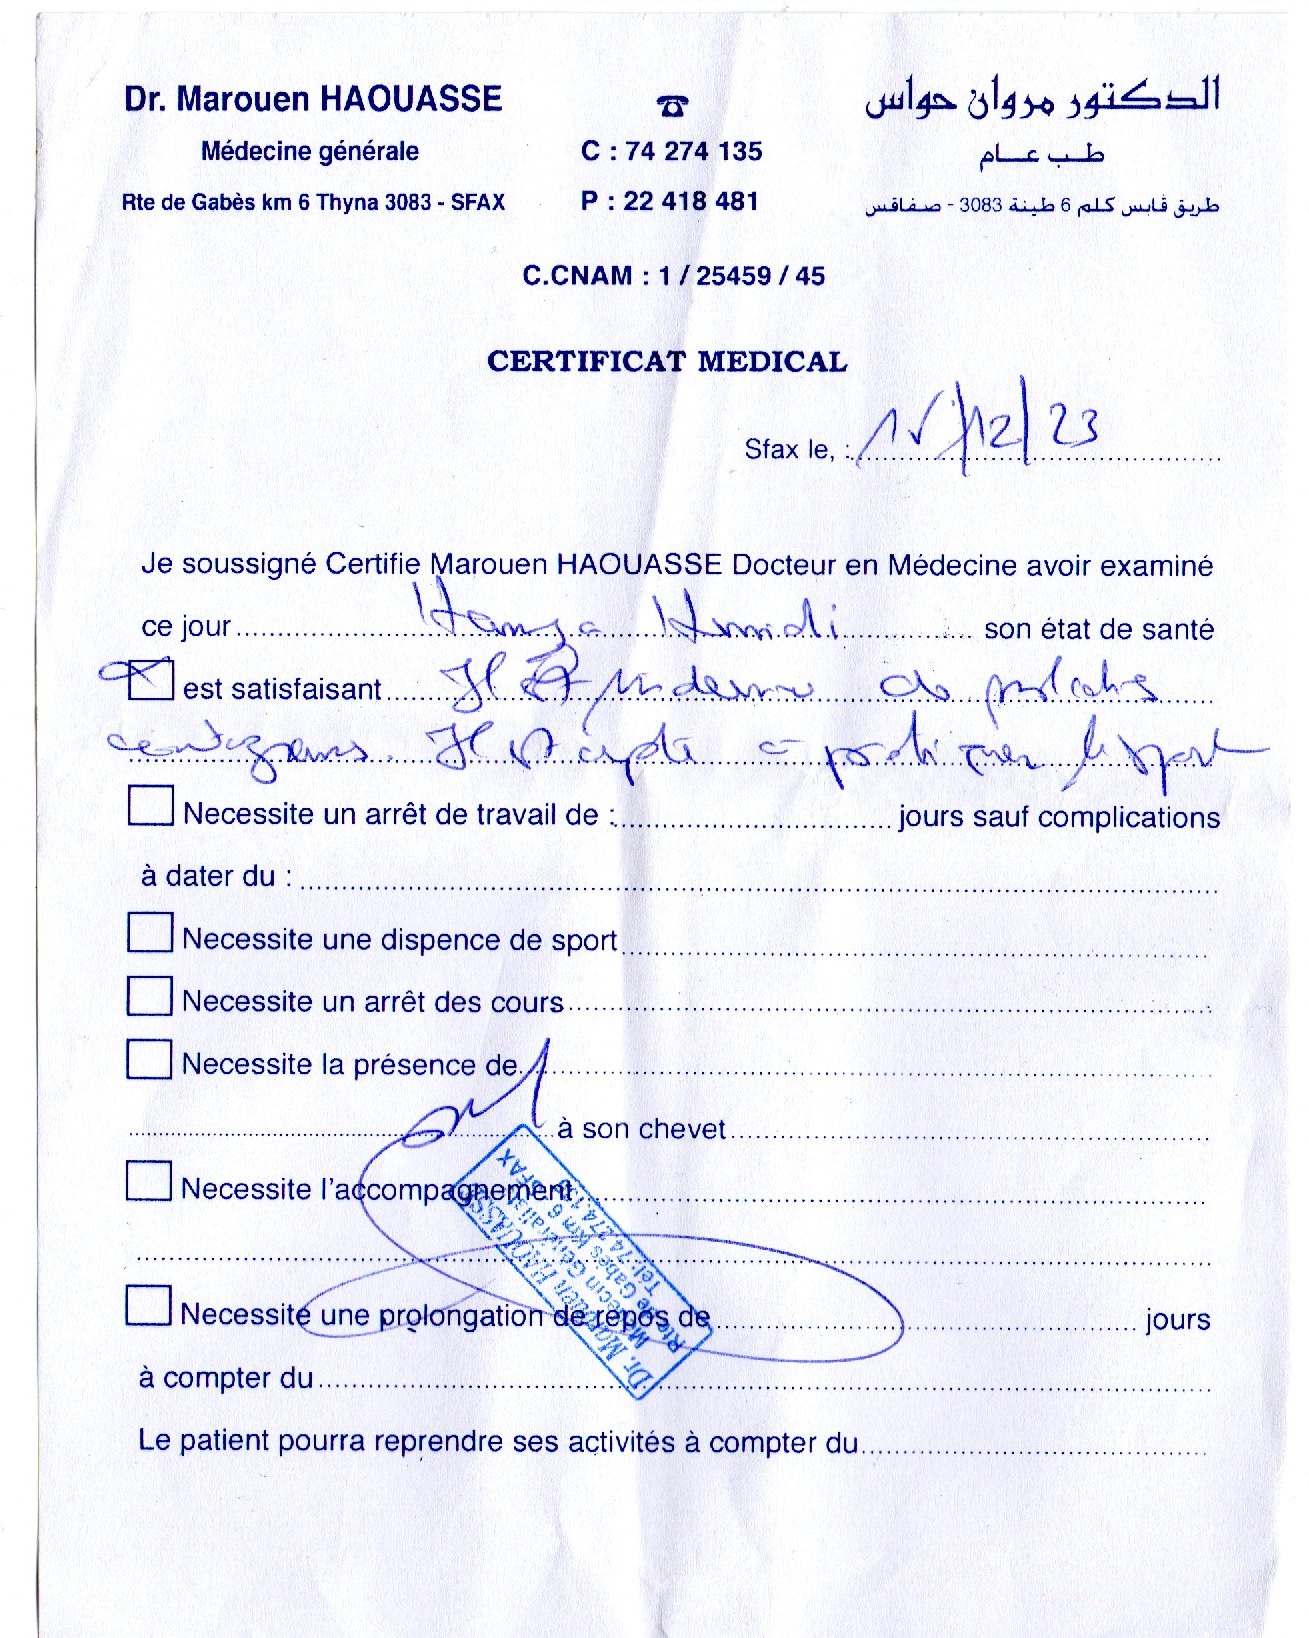 Dr. Marouen HAOUASSE
Médecine générale
Rte de Gabès km 6 Thyna 3083 - SFAX
☎
C : 74 274 135
P : 22 418 481
الدكتور مروان حواس
طب عام
طريق ڤابس كلم 6 طينة 3083 - صفاقس
C.CNAM : 1 / 25459 / 45
CERTIFICAT MEDICAL
Sfax le, : 15/12/23
Je soussigné Certifie Marouen HAOUASSE Docteur en Médecine avoir examiné
ce jour Hamza Hmidi son état de santé
est satisfaisant Il Et indemne de maladies
contagieuses. Il est apte à pratiquer le sport
Necessite un arrêt de travail de : jours sauf complications
à dater du :
Necessite une dispence de sport
Necessite un arrêt des cours
Necessite la présence de
à son chevet
Necessite l'accompagnement
Necessité une prolongation de repos de jours
à compter du
Le patient pourra reprendre ses activités à compter du
Dr. Marouen HAOUASSE
Médecin Généraliste
Rte de Gabès Km 6 SFAX
Tél: 74.274.135